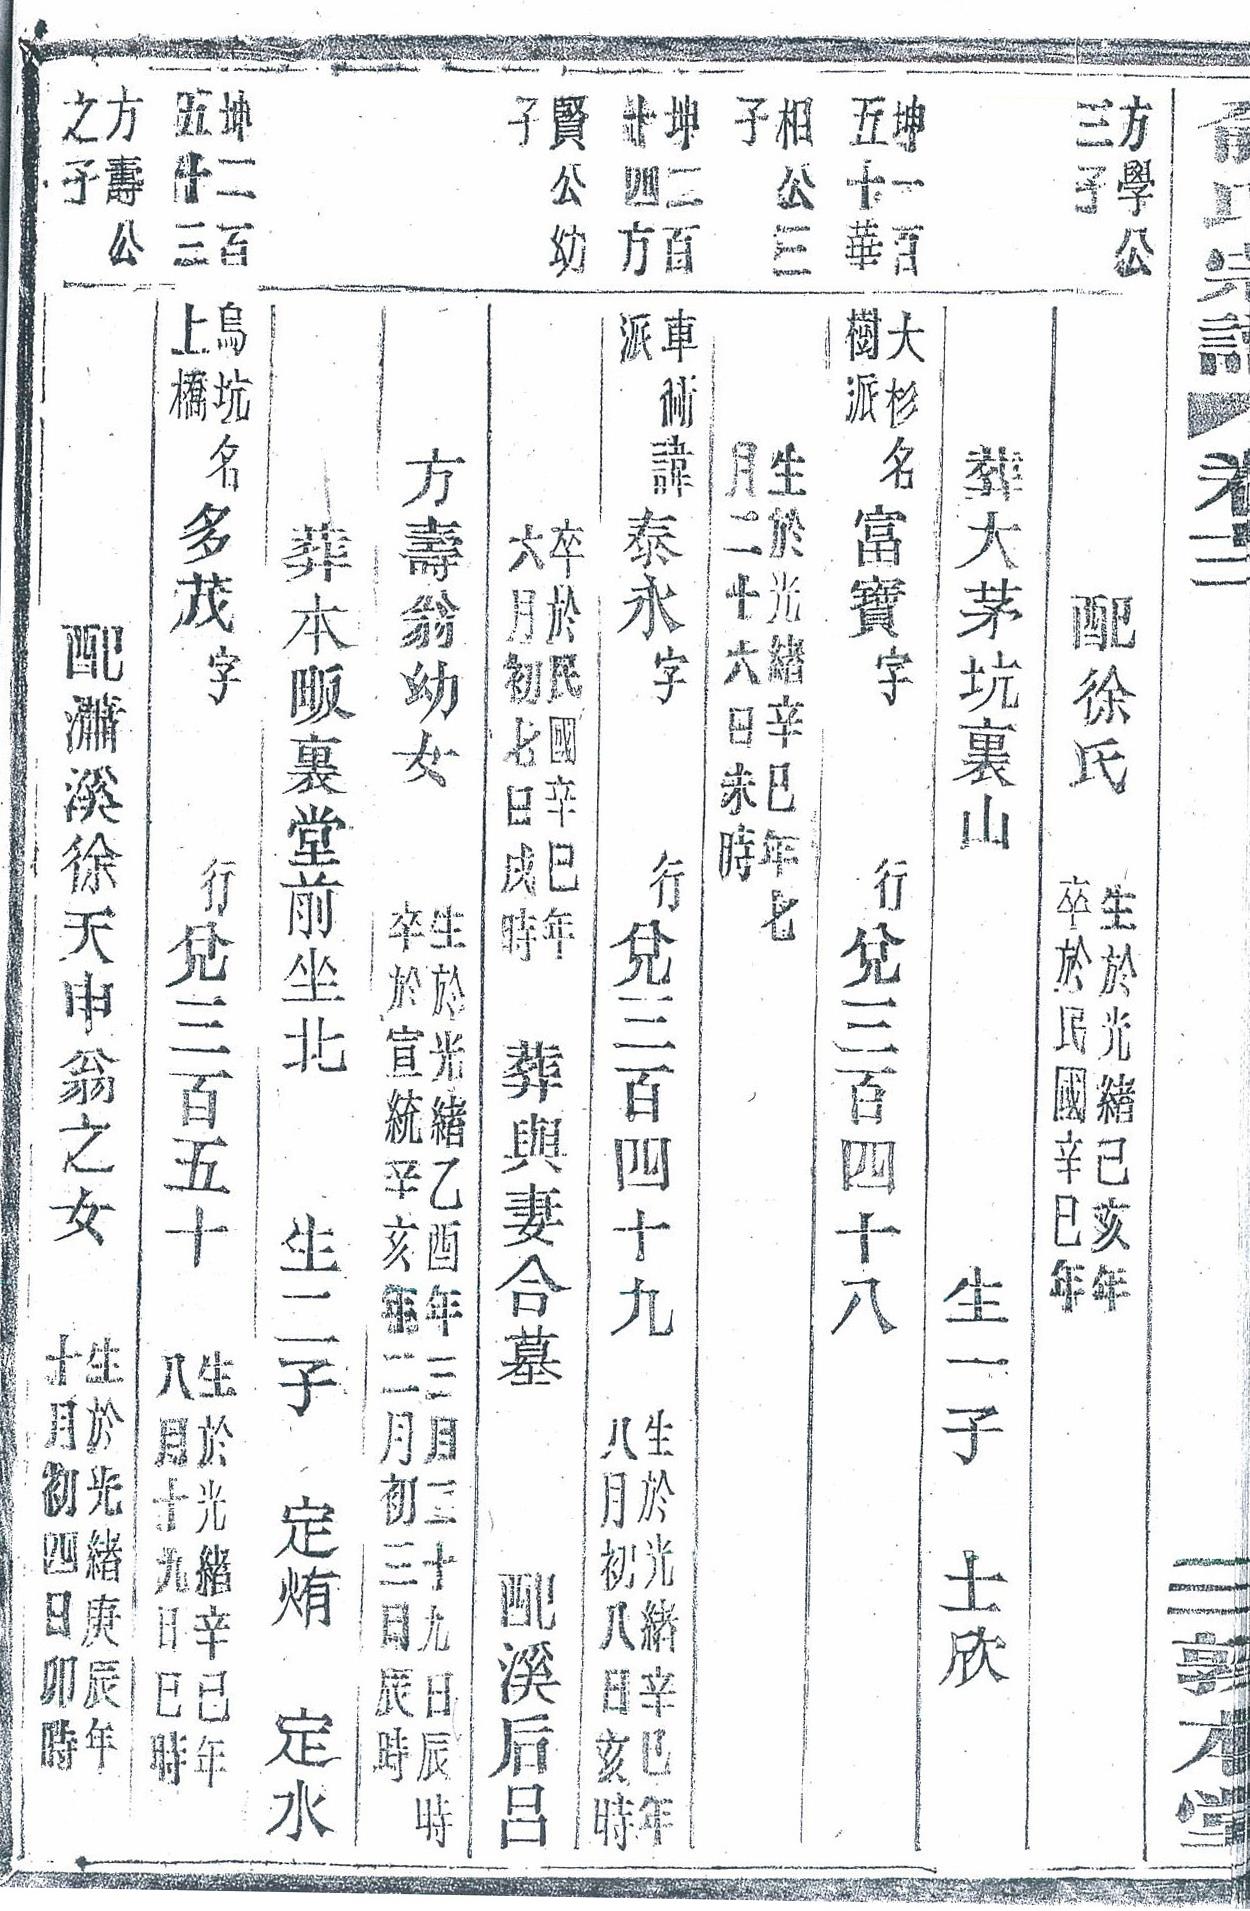 俞氏宗譜
卷二
三 敦本堂
方學公
三子
配徐氏
生於光緒己亥年
卒於民國辛巳年
葬大茅坑裏山 生一子 士欣
坤一百
五十華
大杉
樹派
名富寶字 行兌三百四十八
相公三
子
生於光緒辛巳年七
月二十六日未時
坤二百
廿四方
車衕
派
諱泰永字 行兌三百四十九
生於光緒辛巳年
八月初八日亥時
賢公幼
子
卒於民國辛巳年
六月初七日戌時
葬與妻合墓 配溪后呂
方壽翁幼女
生於光緒乙酉年三月二十九日辰時
卒於宣統辛亥年二月初三日辰時
葬本畈裏堂前坐北 生二子 定烠 定水
坤二百
五十三
烏坑
上橋
名多茂字 行兌三百五十
生於光緒辛巳年
八月十九日巳時
方壽公
之子
配瀟溪徐天申翁之女
生於光緒庚辰年
十月初四日卯時